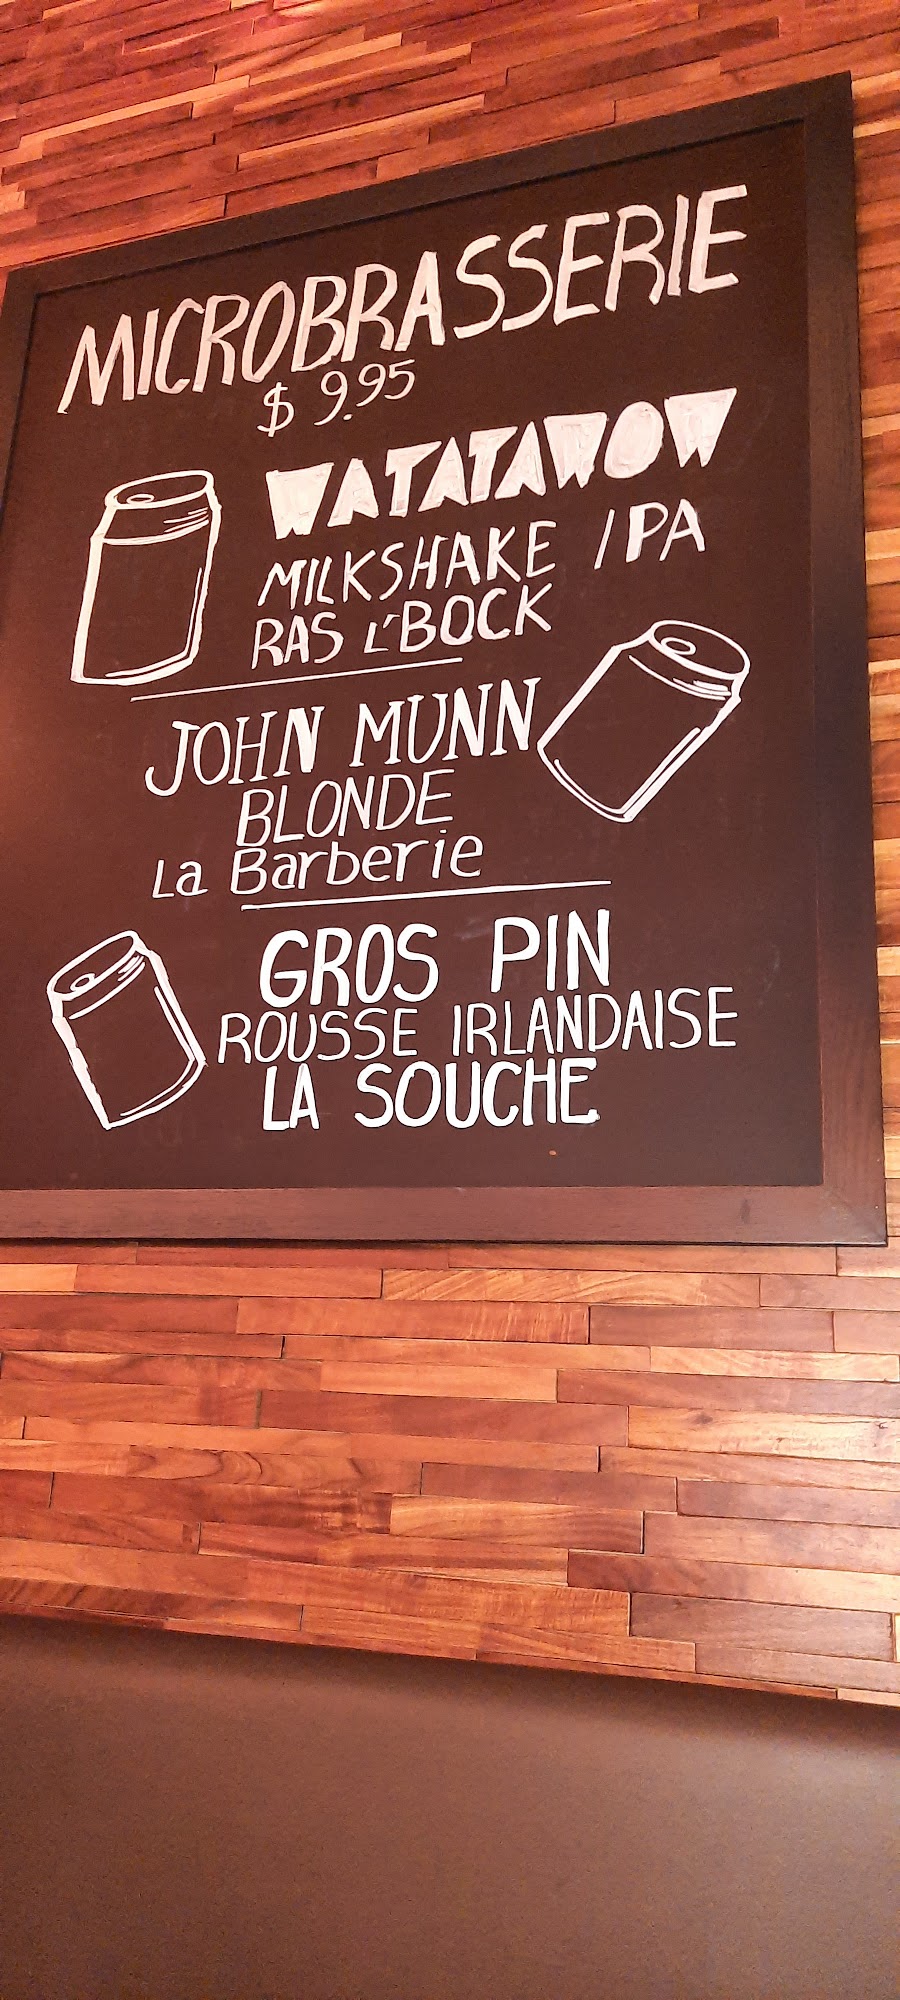 MICROBRASSERIE
$ 9.95
WATATAWOW
MILKSHAKE IPA
RAS L'BOCK
JOHN MUNN
BLONDE
La Barberie
GROS PIN
ROUSSE IRLANDAISE
LA SOUCHE